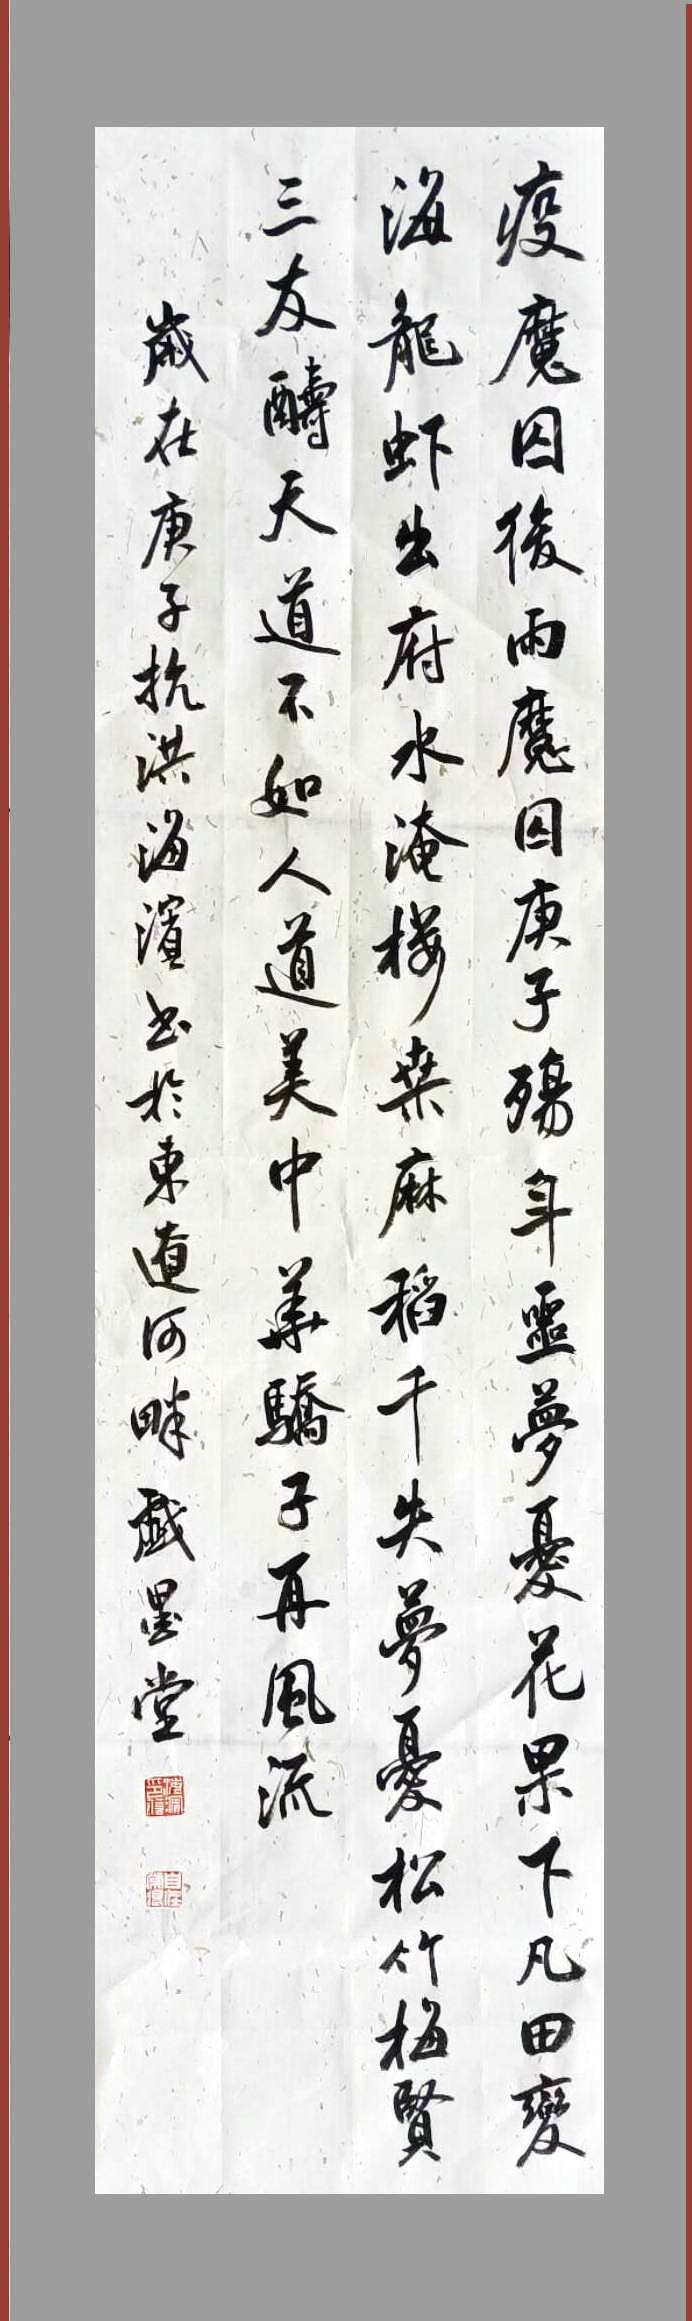 疫魔囚後雨魔囚庚子殤年噩夢憂花果下凡田變
海龍虾出府水淹樓桑麻稻千失夢憂松竹梅賢
三友醻天道不如人道美中華驕子再風流
歲在庚子抗洪海濱书於東遼河畔戲墨堂